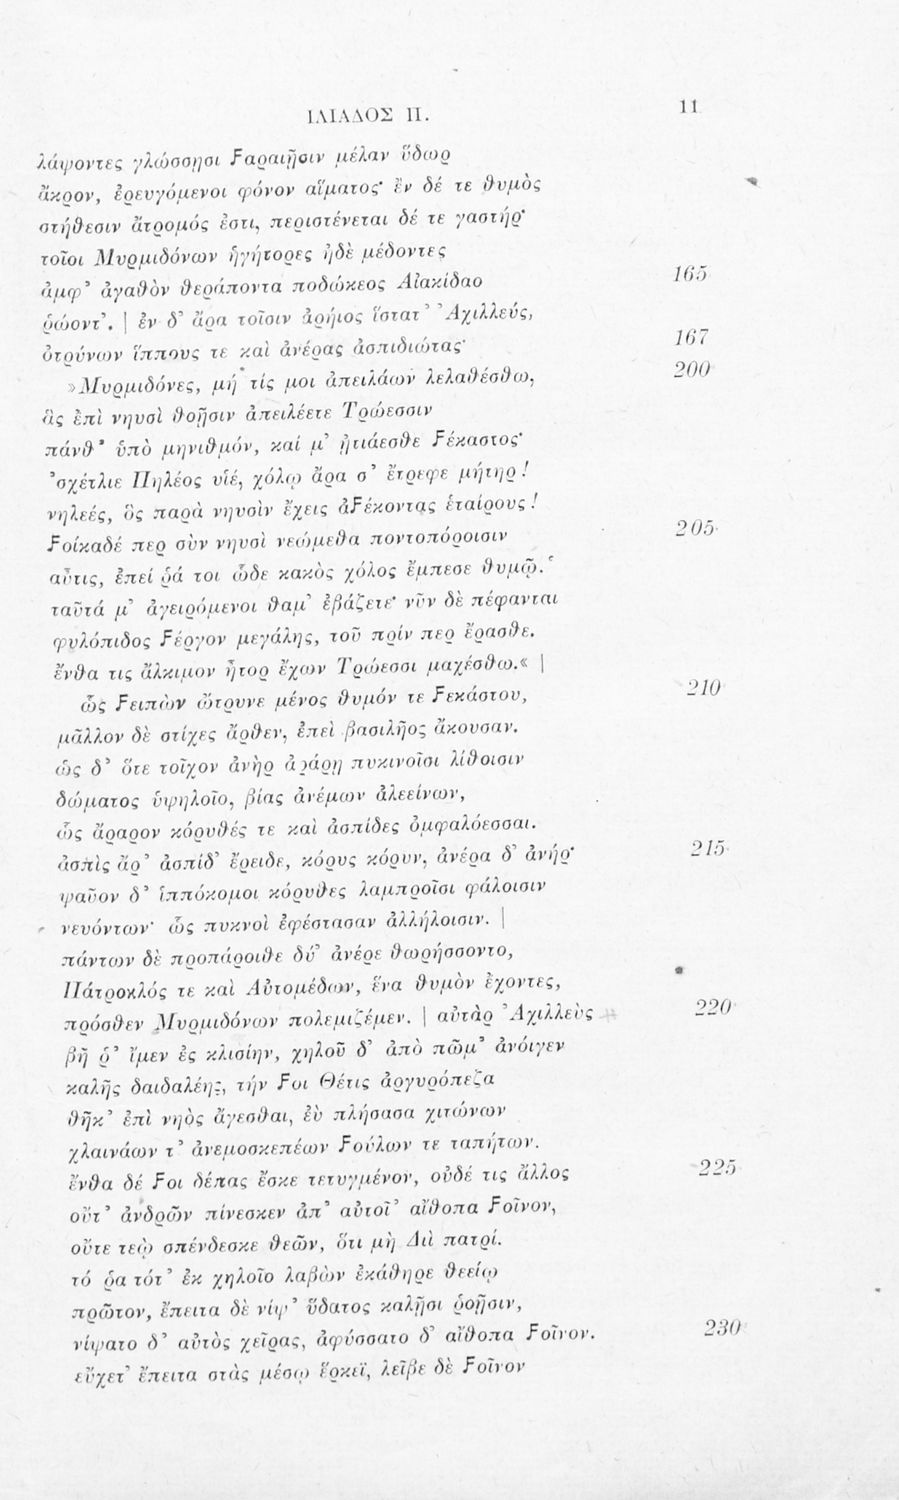 ΙΛΙΑΔΟΣ Π. 11
λάψοντες γλώσσῃσι Ϝαραιῇσιν μέλαν ὕδωρ
ἄκρον, ἐρευγόμενοι φόνον αἵματος· ἔν δέ τε θυμὸς
στήθεσιν ἄτρομός ἐστι, περιστένεται δέ τε γαστήρ·
τοῖοι Μυρμιδόνων ἡγήτορες ἠδὲ μέδοντες
ἀμφ’ ἀγαθὸν θεράποντα ποδώκεος Αἰακίδαο 165
ῥώοντ’. | ἐν δ’ ἄρα τοῖσιν ἀρήιος ἵστατ’ Ἀχιλλεύς,
ὀτρύνων ἵππους τε καὶ ἀνέρας ἀσπιδιώτας· 167
»Μυρμιδόνες, μή τίς μοι ἀπειλάων λελαθέσθω, 200
ἃς ἐπὶ νηυσὶ θοῇσιν ἀπειλέετε Τρώεσσιν
πάνθ’ ὑπὸ μηνιθμόν, καί μ’ ᾐτιάεσθε Ϝέκαστος·
‛σχέτλιε Πηλέος υἱέ, χόλῳ ἄρα σ’ ἔτρεφε μήτηρ!
νηλεές, ὃς παρὰ νηυσὶν ἔχεις ἀϜέκοντας ἑταίρους!
Ϝοίκαδέ περ σὺν νηυσὶ νεώμεθα ποντοπόροισιν 205
αὖτις, ἐπεί ῥά τοι ὧδε κακὸς χόλος ἔμπεσε θυμῷ.‛
ταῦτά μ’ ἀγειρόμενοι θάμ’ ἐβάζετε· νῦν δὲ πέφανται
φυλόπιδος Ϝέργον μεγάλης, τοῦ πρίν περ ἔρασθε.
ἔνθα τις ἄλκιμον ἦτορ ἔχων Τρώεσσι μαχέσθω.« |
ὣς Ϝειπὼν ὤτρυνε μένος θυμόν τε Ϝεκάστου, 210
μᾶλλον δὲ στίχες ἄρθεν, ἐπεὶ βασιλῆος ἄκουσαν.
ὡς δ’ ὅτε τοῖχον ἀνὴρ ἀράρῃ πυκινοῖσι λίθοισιν
δώματος ὑψηλοῖο, βίας ἀνέμων ἀλεείνων,
ὣς ἄραρον κόρυθές τε καὶ ἀσπίδες ὀμφαλόεσσαι.
ἀσπὶς ἄρ’ ἀσπίδ’ ἔρειδε, κόρυς κόρυν, ἀνέρα δ’ ἀνήρ· 215
ψαῦον δ’ ἱππόκομοι κόρυθες λαμπροῖσι φάλοισιν
νευόντων· ὣς πυκνοὶ ἐφέστασαν ἀλλήλοισιν. |
πάντων δὲ προπάροιθε δύ’ ἀνέρε θωρήσσοντο,
Πάτροκλός τε καὶ Αὐτομέδων, ἕνα θυμὸν ἔχοντες,
πρόσθεν Μυρμιδόνων πολεμιζέμεν. | αὐτὰρ Ἀχιλλεὺς 220
βῆ ῥ’ ἴμεν ἐς κλισίην, χηλοῦ δ’ ἀπὸ πῶμ’ ἀνόιγεν
καλῆς δαιδαλέης, τήν Ϝοι Θέτις ἀργυρόπεζα
θῆκ’ ἐπὶ νηὸς ἄγεσθαι, ἐὺ πλήσασα χιτώνων
χλαινάων τ’ ἀνεμοσκεπέων Ϝούλων τε ταπήτων.
ἔνθα δέ Ϝοι δέπας ἔσκε τετυγμένον, οὐδέ τις ἄλλος 225
οὔτ’ ἀνδρῶν πίνεσκεν ἀπ’ αὐτοῖ’ αἴθοπα Ϝοῖνον,
οὔτε τεῳ σπένδεσκε θεῶν, ὅτι μὴ Διὶ πατρί.
τό ῥα τότ’ ἐκ χηλοῖο λαβὼν ἐκάθηρε θεείῳ
πρῶτον, ἔπειτα δὲ νίψ’ ὕδατος καλῇσι ῥοῇσιν,
νίψατο δ’ αὐτὸς χεῖρας, ἀφύσσατο δ’ αἴθοπα Ϝοῖνον. 230
εὔχετ’ ἔπειτα στὰς μέσῳ ἕρκεϊ, λεῖβε δὲ Ϝοῖνον